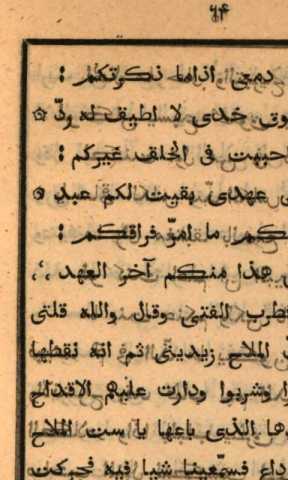 ٦۴
دمعى اذا ما ذكرتكم :
فوق خدى لا اطيق له ردّ
احببت فى الخلف غيركم :
عهدى بقيت لكم عبد
ما امرّ فراقكم :
هذا منكم آخر العهد
فطرب الفتى وقال والله قلتى
الملاح زيدينى ثم انه نقطها
وشربوا ودارت عليهم الاقداح
الذى باعها يا ست الملاح
فسمّعينا شيا فيه فحركت